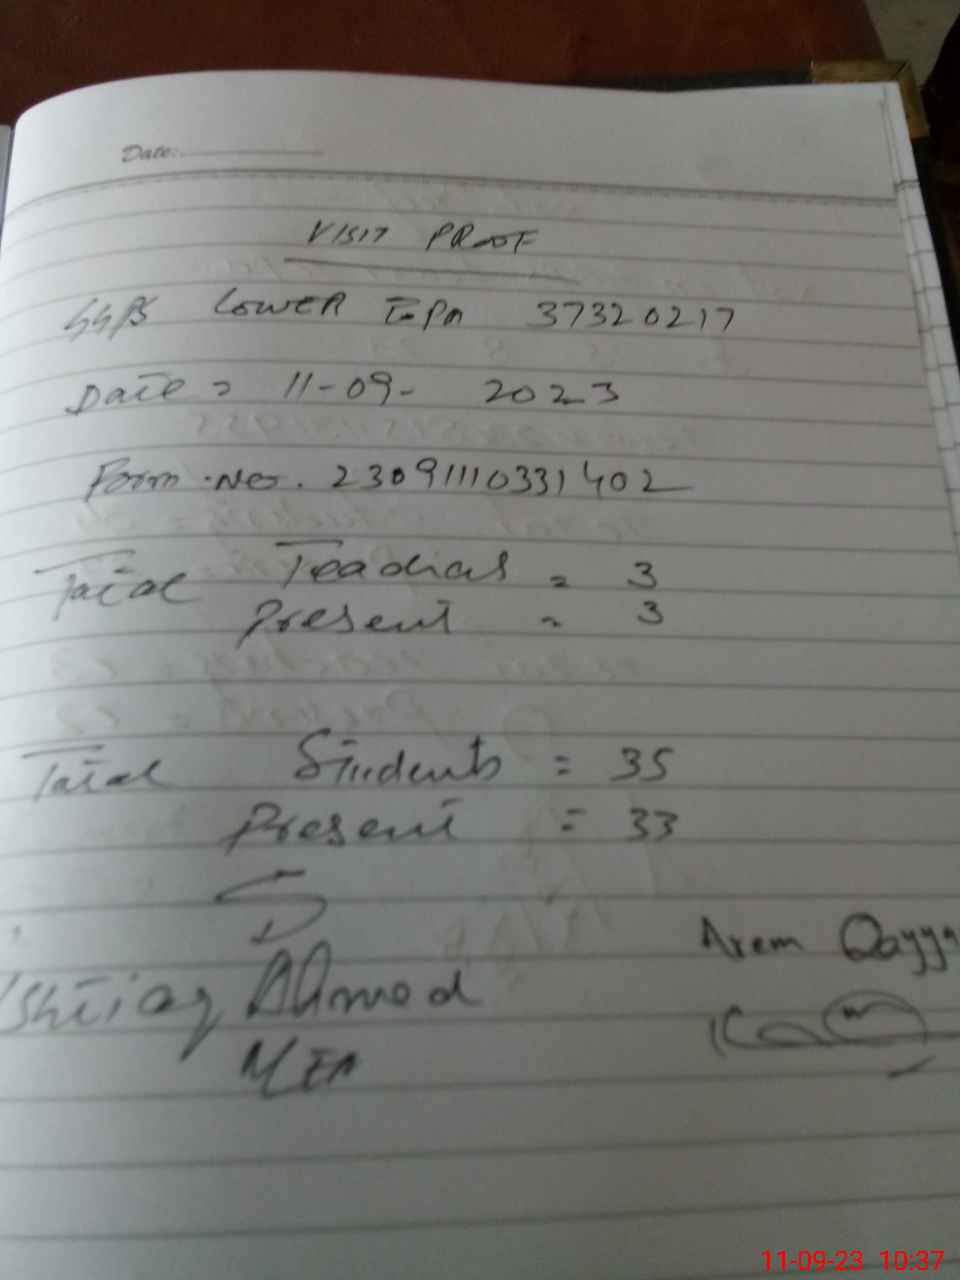 Date:
VISIT PROOF
GGPS LOWER Topa 37320217
Date = 11-09-2023
Form No. 23091110331402
Total Teachers = 3
Present = 3
Total Students = 35
Present = 33
Ishtiaq Ahmed
MEA
Arem Qayyu
11-09-23 10:37